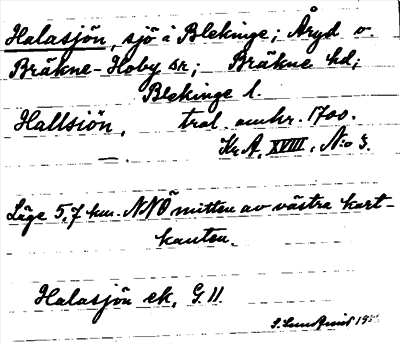 Halasjön, sjö i Blekinge; Åryd o.
Bräkne-Hoby sn; Bräkne hd;
Blekinge l.
Hallsiön, trol. omkr. 1700.
Kr.A. XVIII, N:o 3.
Läge 5,7 km. NNÖ mitten av västra kart-
kanten.
Halasjön ek. G 11.
S. Lundqvist